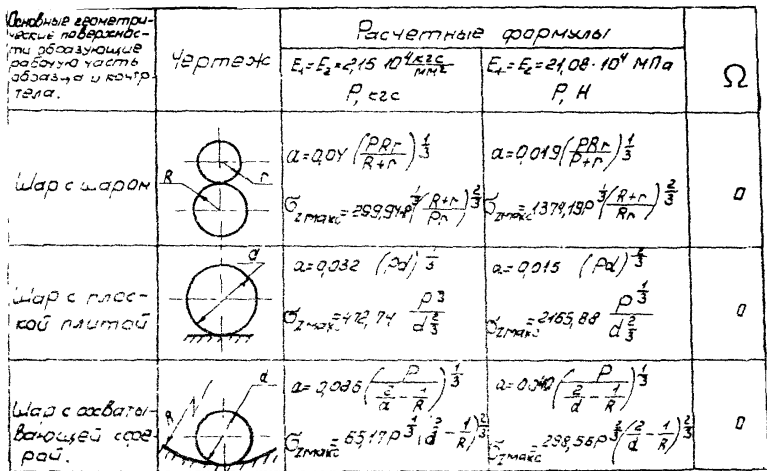 Основные геометри-
ческие поверхнос-
ти образующие
рабочую часть
образца и контр-
тела.
Чертеж
Расчетные формулы
E₁=E₂=2,15·10⁴ кгс/мм²
P, кгс
E₁=E₂=21,08·10⁴ МПа
P, Н
Ω
Шар с шаром
R
r
a=0,04 (PRr/R+r)^1/3
σzмакс=299,94P^1/3 (R+r/Pr)^2/3
a=0,019 (PRr/P+r)^1/3
σzмакс=1374,19P^1/3 (R+r/Rr)^2/3
0
Шар с плос-
кой плитой
d
a=0,032 (Pd)^1/3
σzмакс=472,74 P^3/d^2/3
a=0,015 (Pd)^1/3
σzмакс=2165,88 P^1/3/d^2/3
0
Шар с охваты-
вающей сфе-
рой.
R
d
a=0,086 (P/(2/d - 1/R))^1/3
σzмакс=65,17P^1/3 (2/d - 1/R)^2/3
a=0,040 (P/(2/d - 1/R))^1/3
σzмакс=298,56P^2/3 (2/d - 1/R)^2/3
0